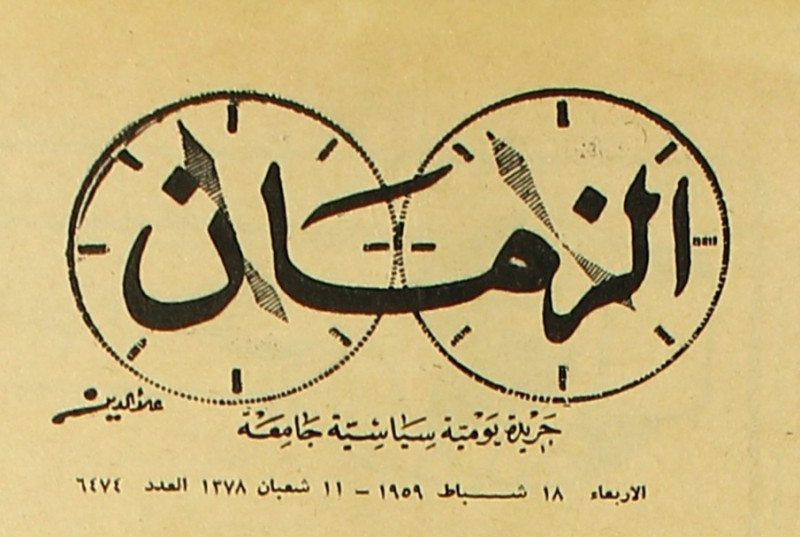 الزمان
علاء الدين
جَرْيدة يَوْميّة سِيَاسِيّة جَامِعَة
الاربعاء ١٨ شباط ١٩٥٩ – ١١ شعبان ١٣٧٨ العدد ٦٤٧٤